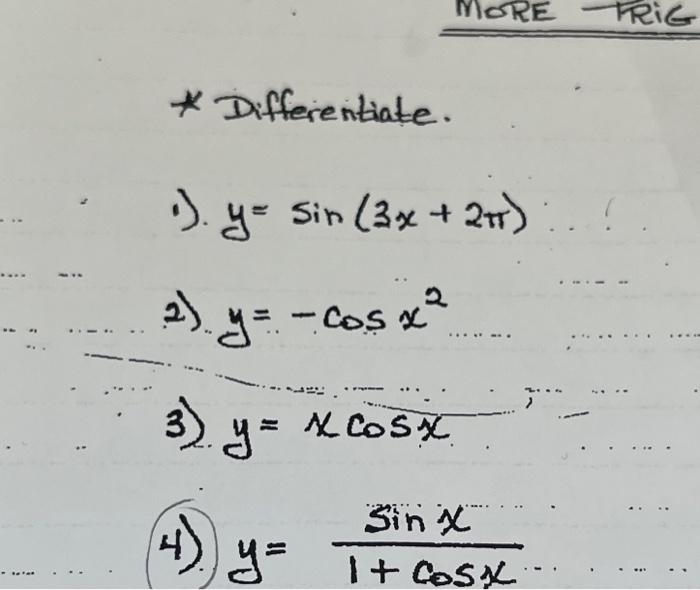 MORE TRIG
* Differentiate.
1). y = sin (3x + 2π)
2). y = - cos x²
3). y = x cos x
4). y = sin x / 1 + cos x